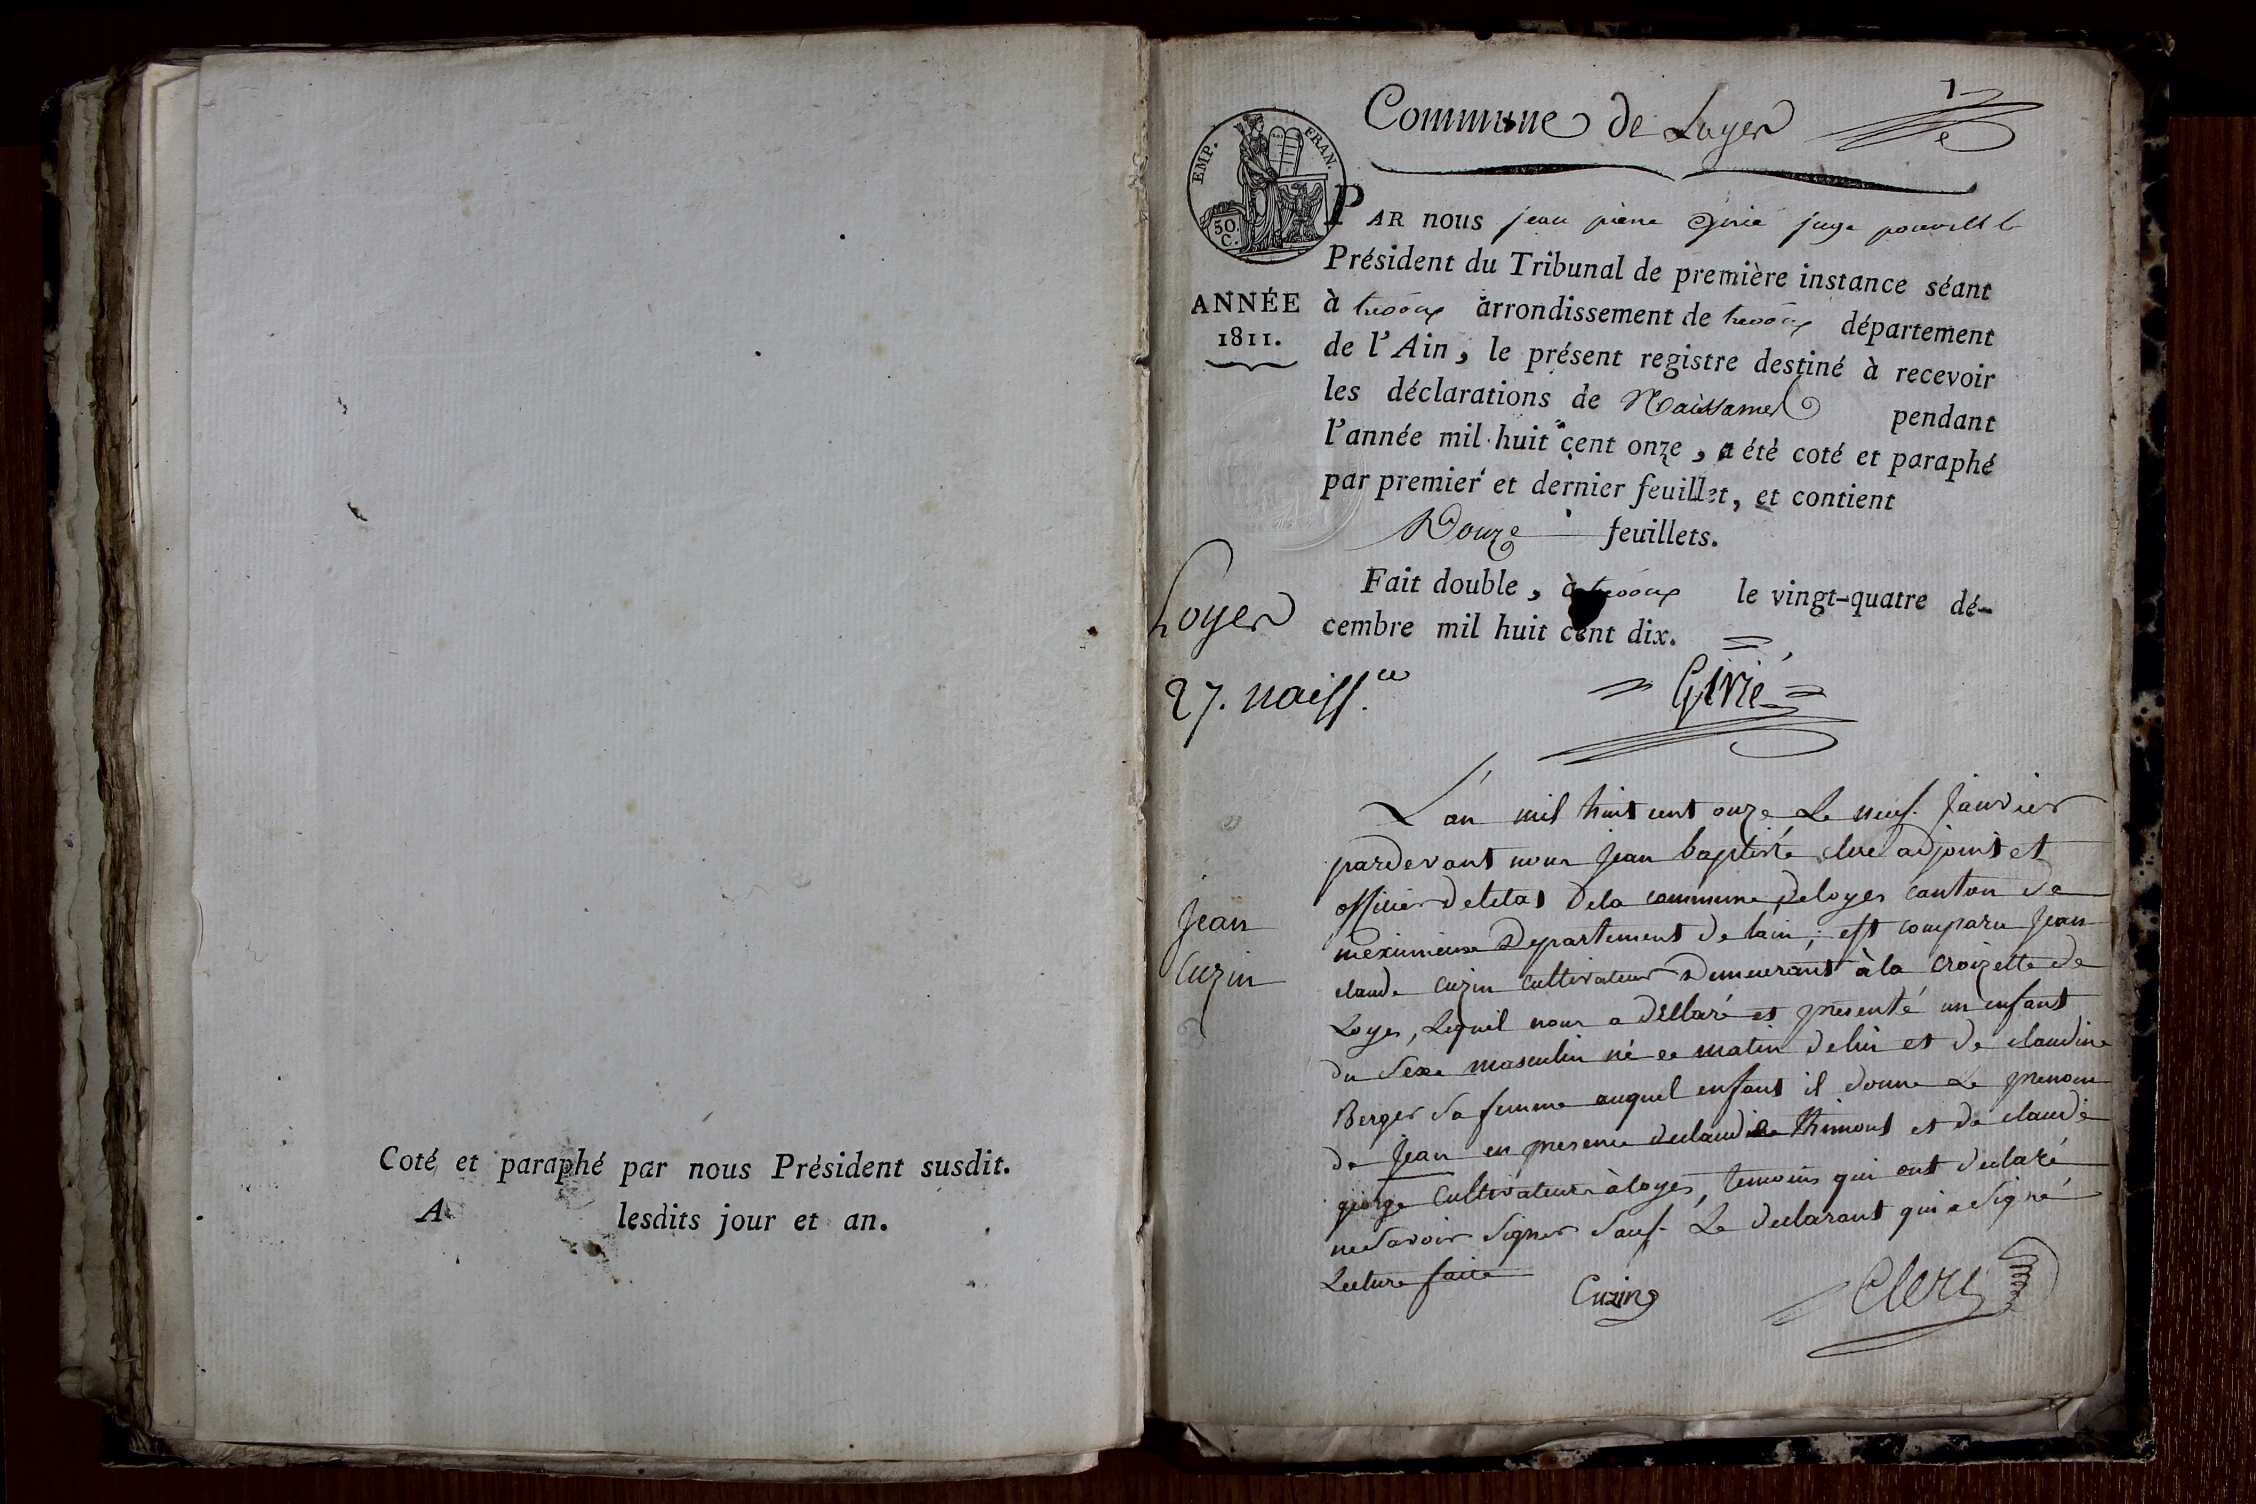 Coté et paraphé par nous Président susdit.
A lesdits jour et an.
Commune de Loyes
1
EMP. FRAN.
50 C.
ANNÉE
1811.
PAR nous jean pierre Girié juge pour le
Président du Tribunal de première instance séant
à trevoux arrondissement de trevoux département
de l'Ain, le présent registre destiné à recevoir
les déclarations de Naissances pendant
l'année mil huit cent onze, a été coté et paraphé
par premier et dernier feuillet, et contient
Douze feuillets.
Fait double, à trevoux le vingt-quatre dé-
cembre mil huit cent dix.
Girié
Loyes
27. naiss.ce
Jean
Cuzin
L'an mil huit cent onze Le neuf Janvier
pardevant nous Jean baptiste clerc adjoint et
officier deletat dela commune deloyes canton de
meximieux Departement de lain; est comparu Jean
claude cuzin cultivateur Demeurant à la croizette de
Loyes, Lequel nous a déllaré et présenté un enfant
du Sexe masculin né ce matin delui et de claudine
Berger sa femme auquel enfant il donne Le prenom
de Jean en presence declaude thimont et de claude
george Cultivateurs àloyes, temoins qui ont declaré
ne Savoir Signer Sauf Le declarant qui a Signé
Lecture faite
Cuzin
Clerc